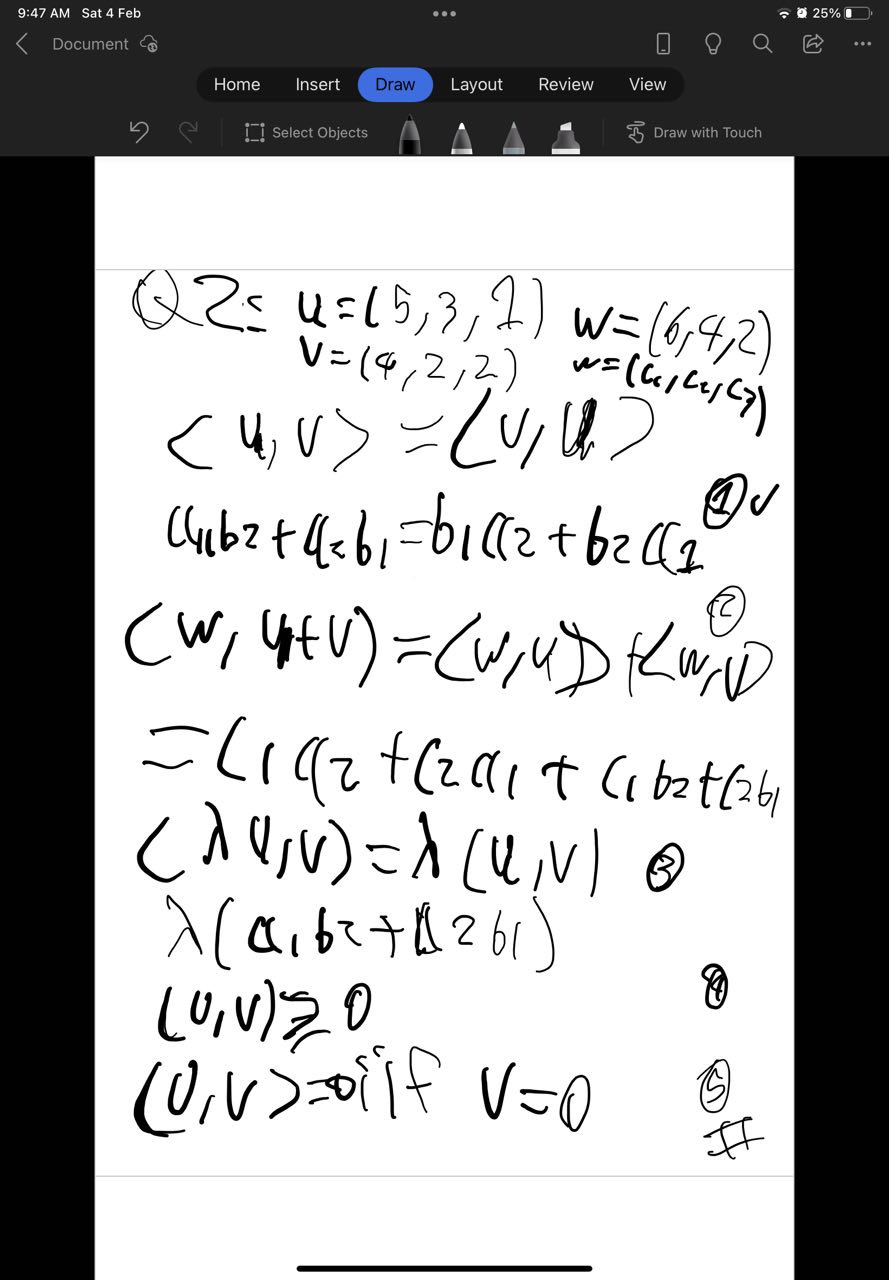 9:47 AM Sat 4 Feb
25%
Document
Home Insert Draw Layout Review View
Select Objects
Draw with Touch
Q2= u=(5,3,1) w=(6,4,2)
v=(4,2,2) w=(c1,c2,c3)
<u,v> = <v,u>
① ✓
a1b2+a2b1=b1a2+b2a1
②
(w,u+v)=<w,u)+<w,v)
=c1a2+c2a1+c1b2+c2b1
(λu,v)=λ(u,v) ③
λ(a1b2+a2b1)
(u,v)≥0 ④
(u,v>=0iif v=0 ⑤